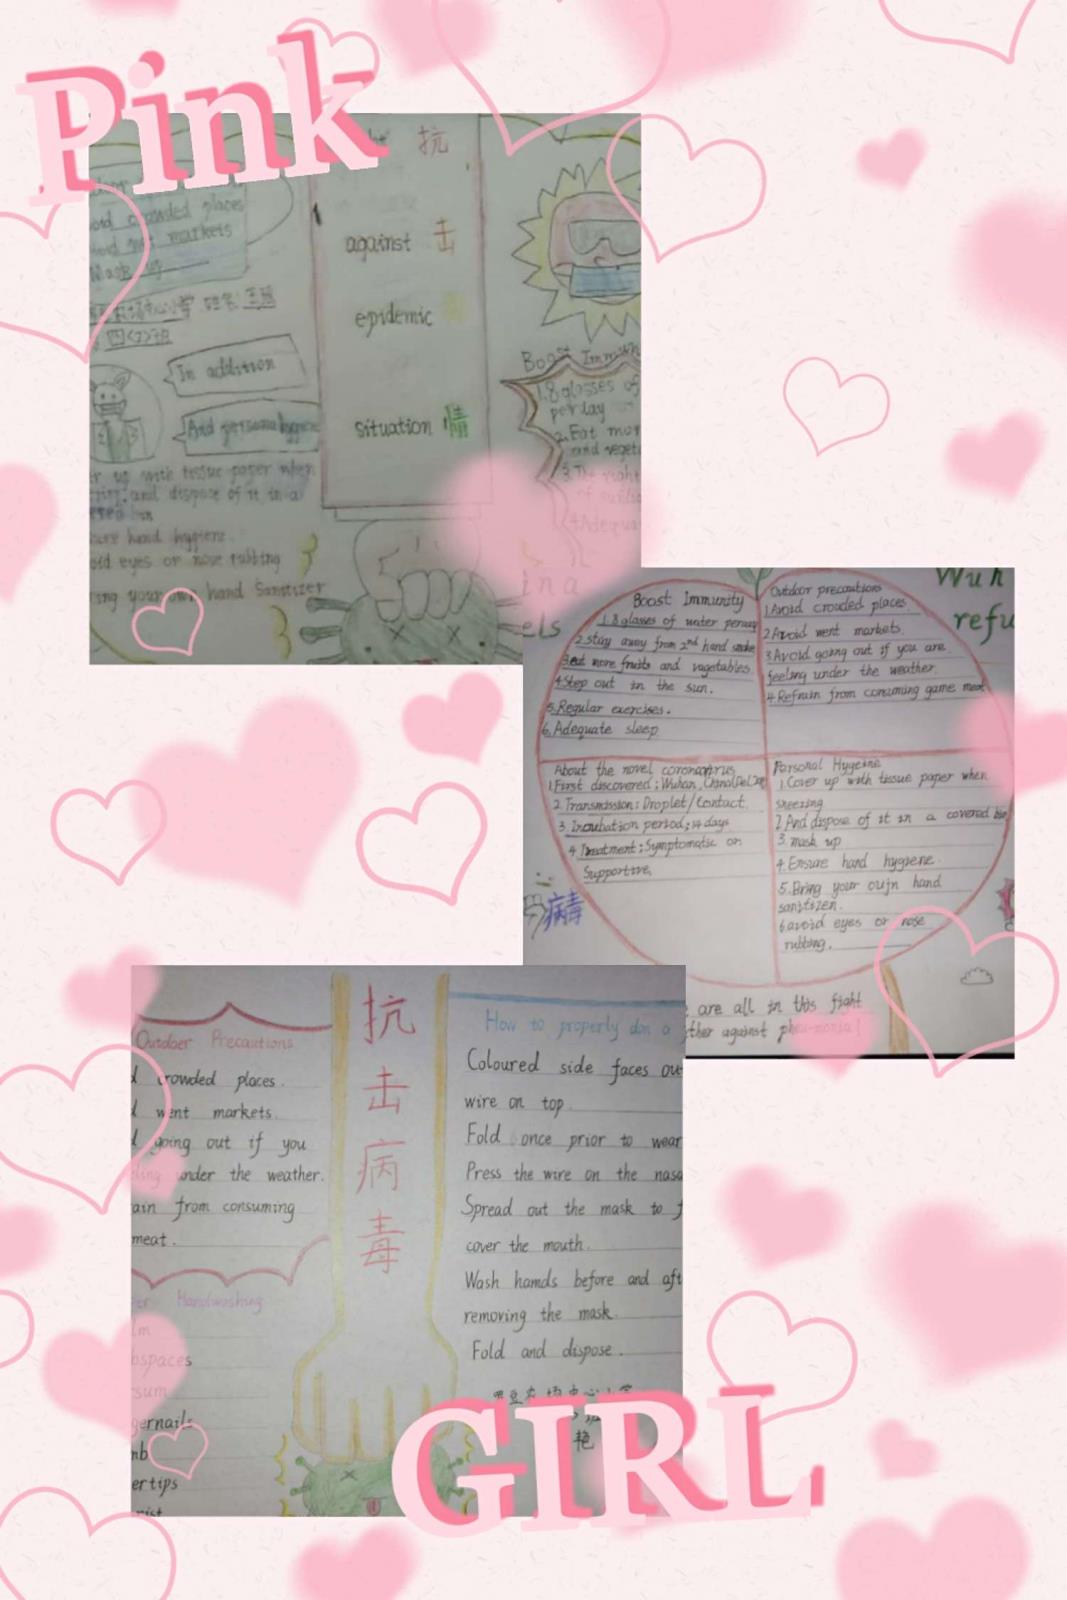 Pink
抗
crowded places
markets
against 击
epidemic
In addition
And personal hygiene
situation 情
Boost
1.8 glasses of
per day
2.Eat mor
and veget
up with tissue paper when
and dispose of it in a
hand hygiene.
eyes or nose rubbing
your own hand Sanitizer
in a
els
Boost Immunity
1.8 glasses of water perday
2.stay away from 2nd hand smoke
3.eat more fruits and vagetables.
4.Step out in the sun.
5.Regular exercises.
6.Adequate sleep
Outdoor precautions
1.Avoid crouded places.
2.Avoid went markets.
3.Avoid going out if you are
feeling under the weather.
4.Refrain from consuming game meat
Wuh
refu
About the novel coronaprus
1.First discovered: Wuhan,
2.Transmission: Droplet/Contact.
3.Incubation period; 14 days
4.Treatment: Symptomatic or
Supportive.
Parsonal Hygeine
1.Cover up with tissue paper when
sneezing
2.And dispose of it in a covered bin
3.mask up
4.Ensure hand hygiene.
5.Bring your oujn hand
sanitizen.
6.avoid eyes or nose
rubbing.
病毒
are all in this fight
ther against pneumonia!
Outdoor Precautions
crowded places.
went markets.
going out if you
under the weather.
ain from consuming
meat.
Handwashing
lm
spaces
sum
gernails
mb
ertips
抗
击
病
毒
How to properly don a
Coloured side faces ou
wire on top.
Fold once prior to wear
Press the wire on the nasa
Spread out the mask to f
cover the mouth.
Wash hamds before and aft
removing the mask.
Fold and dispose.
艳
GIRL